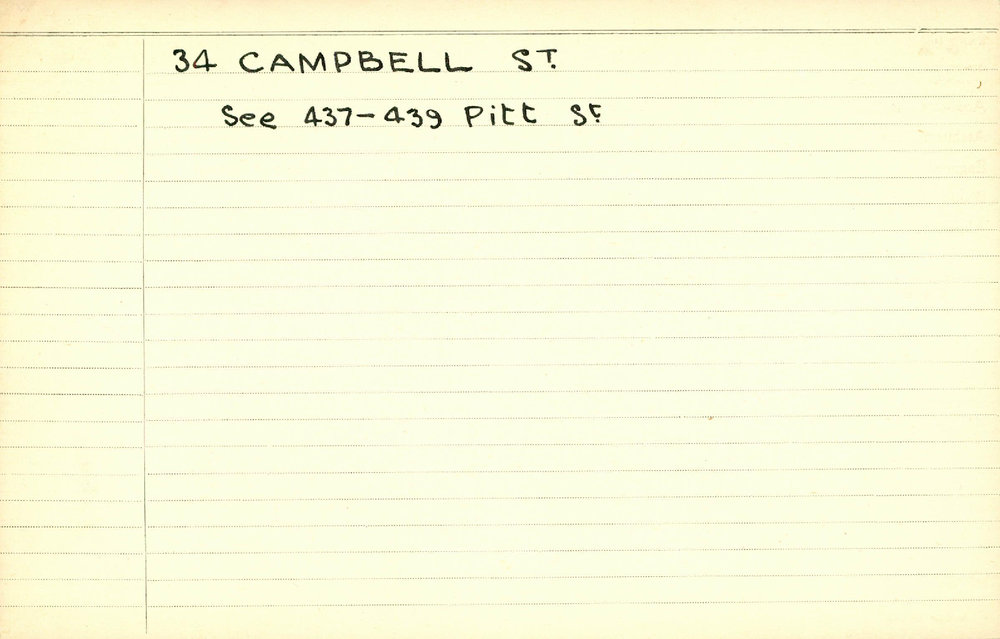 34 CAMPBELL ST.
See 437-439 Pitt St.